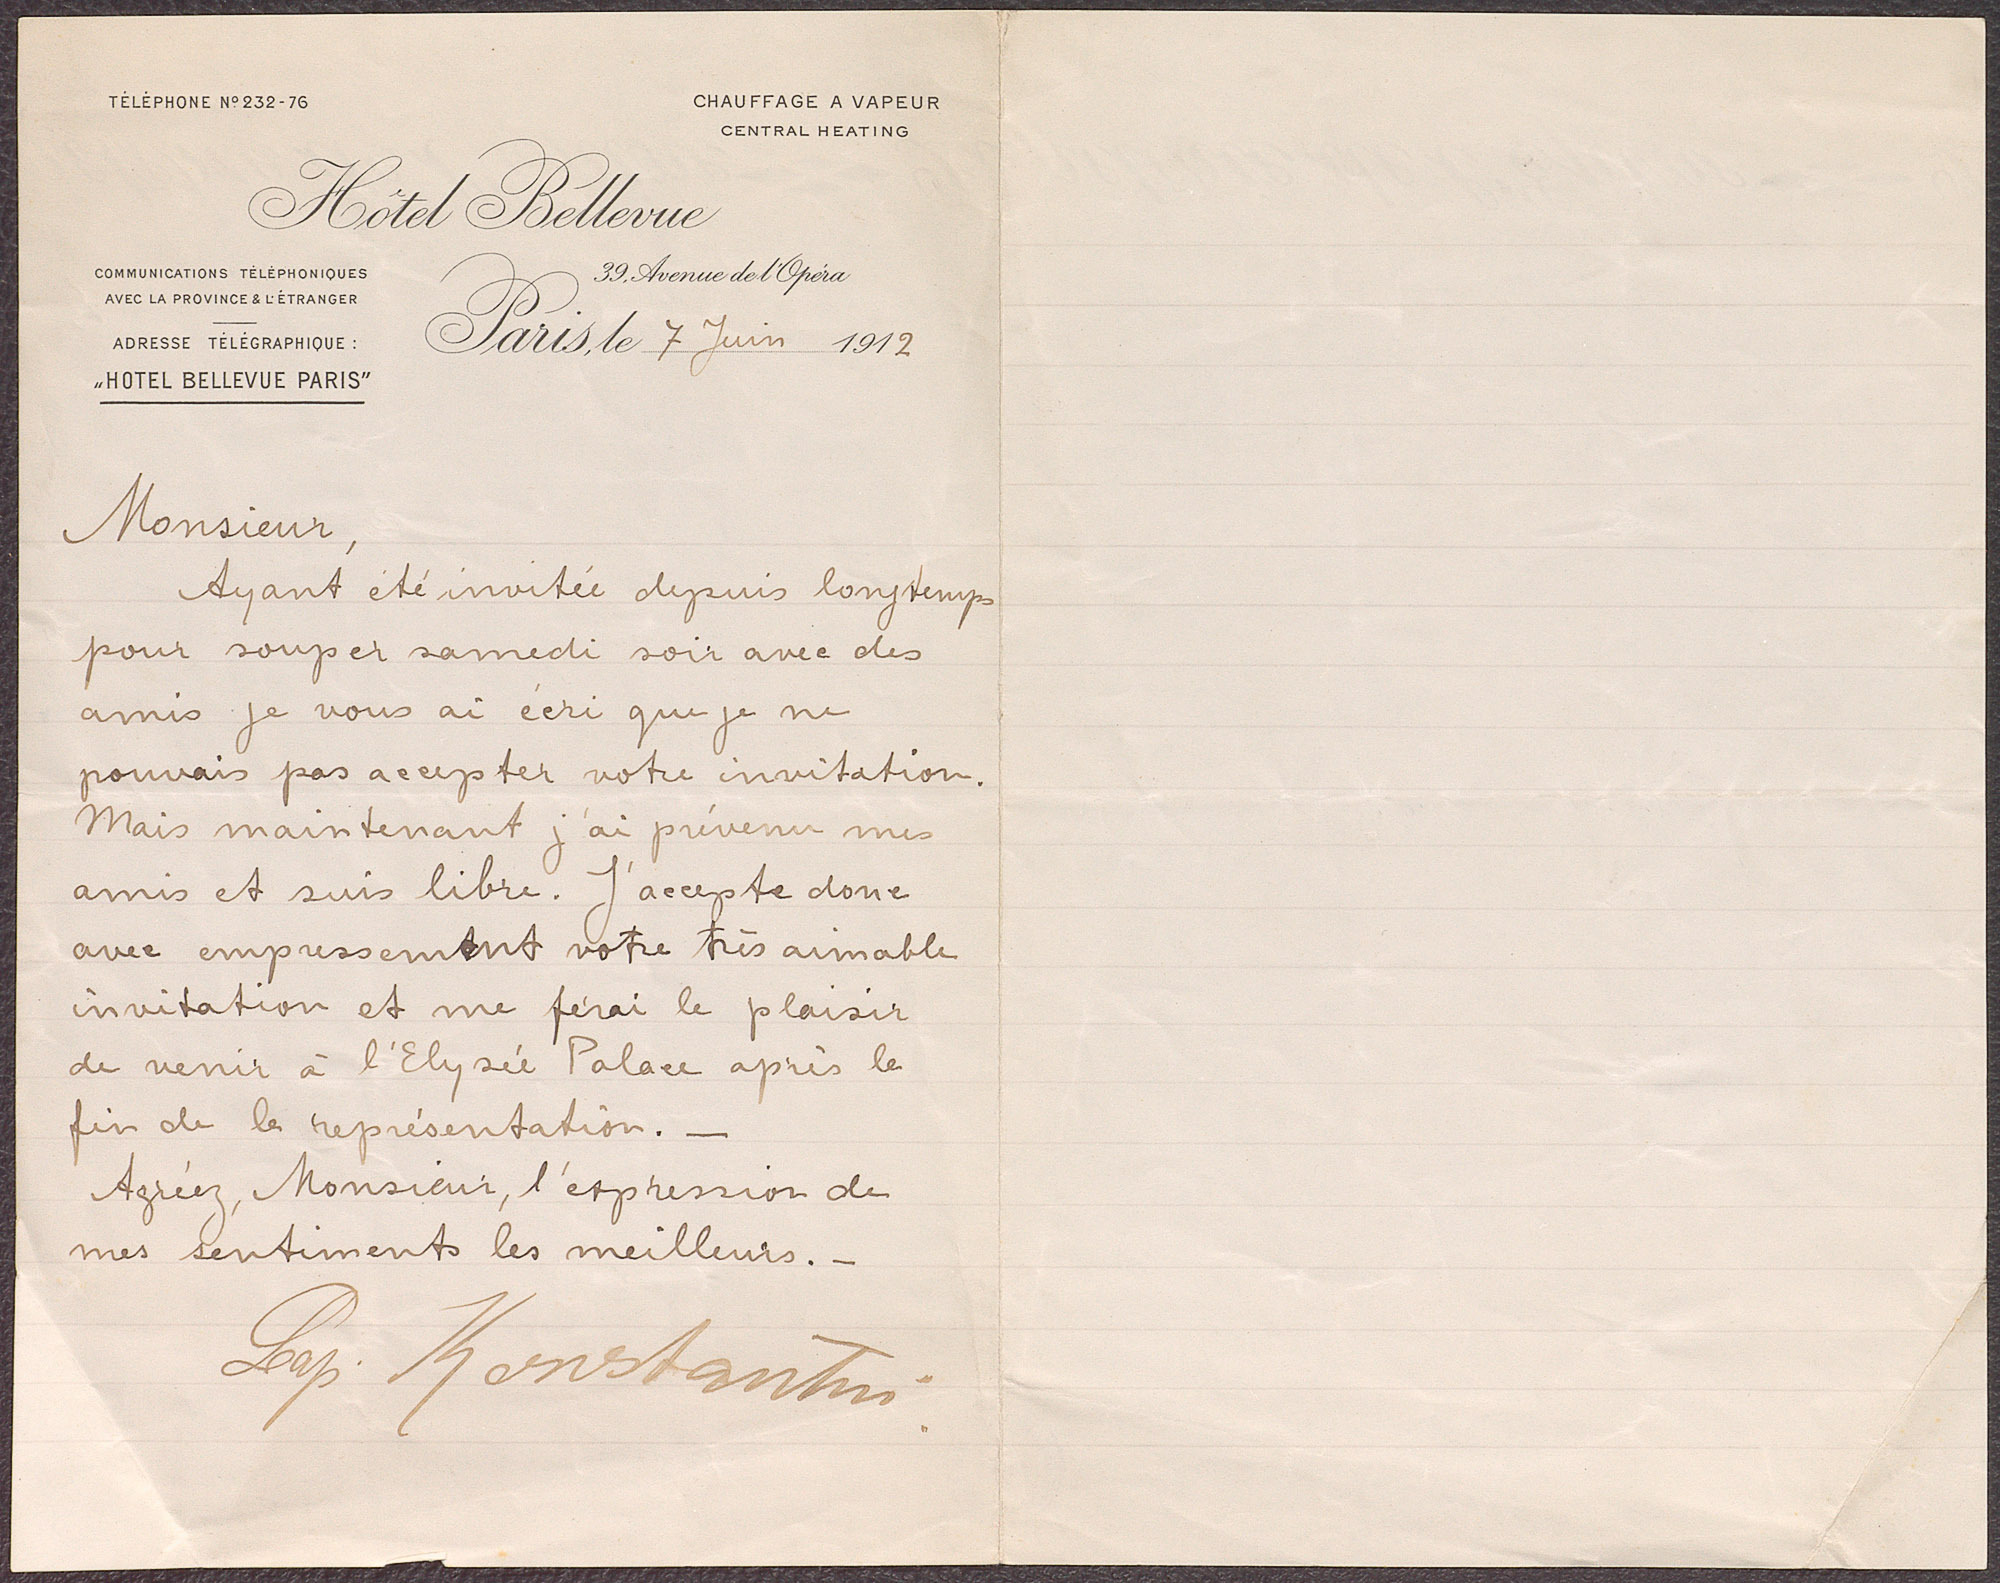 TÉLÉPHONE Nº 232-76
CHAUFFAGE A VAPEUR
CENTRAL HEATING
Hôtel Bellevue
39, Avenue de l'Opéra
COMMUNICATIONS TÉLÉPHONIQUES
AVEC LA PROVINCE & L'ÉTRANGER
ADRESSE TÉLÉGRAPHIQUE :
„HOTEL BELLEVUE PARIS”
Paris, le 7 Juin 1912
Monsieur,
Ayant été invitée depuis longtemps
pour souper samedi soir avec des
amis je vous ai écri que je ne
pouvais pas accepter votre invitation.
Mais maintenant j'ai prévenu mes
amis et suis libre. J'accepte donc
avec empressement votre très aimable
invitation et me férai le plaisir
de venir à l'Elysée Palace après la
fin de la représentation. —
Agréez, Monsieur, l'expression de
mes sentiments les meilleurs. —
Konstantin